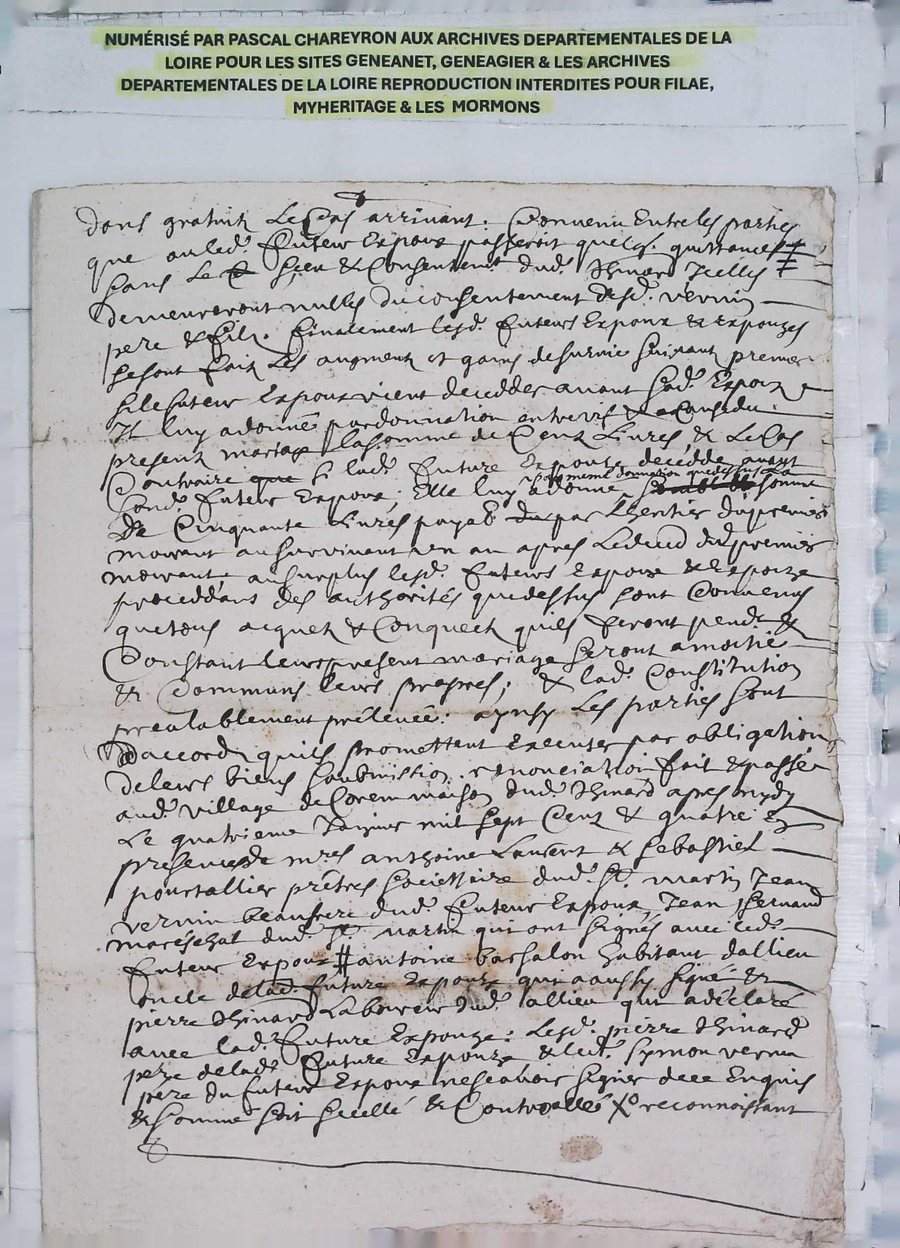 NUMÉRISÉ PAR PASCAL CHAREYRON AUX ARCHIVES DEPARTEMENTALES DE LA
LOIRE POUR LES SITES GENEANET, GENEAGIER & LES ARCHIVES
DEPARTEMENTALES DE LA LOIRE REPRODUCTION INTERDITES POUR FILAE,
MYHERITAGE & LES MORMONS
dons gratuitz le cas arrivant. Convenu entre les parties
que ou led. futeur expoux passeroit quelq. quittances
sans le sceu & consentemt. dud. thinard icelles
demeureront nulles du consentement desd. vernin
pere & filz. finalement lesd. futeurs expoux & expouzes
se sont faitz les augment et gains de survie suivant premier
si le futeur expoux vient decedder avant sad. expouze
Il luy a donné par donnation entre vifs & a cause du
present mariage la somme de Cent Livres & le cas
contraire si lad. future expouze decedde avant
sond. futeur expoux, Elle luy a donné par mesme donnation que dessus la somme
de Cinquante Livres payab. par lheritier du premier
mourant au survivant un an apres le deced dud. premier
mourant, au surplus lesd. futeurs expoux & expouze
proceddans des authorités que dessus sont convenus
que tous acquetz & conquetz quils feront pendt. &
Constant leur present mariage seront a moitié
& communs leurs propres, & lad. Constitution
prealablement prélevée: aynsy les parties sont
daccord quils promettent executer par obligation
de leurs biens soubmission renonciation fait & passé
aud. village de maison dud. thinard apres midy
Le quatrieme Janvier mil sept Cent & quatre En
presence de mres anthoine Laurent & sebastien
pourtallier prêtres societtaire dud. St. martin Jean
vernin beaufrere dud. futeur Expoux, Jean
maréschal dud. St martin qui ont signés avec led.
futeur expoux # antoine barsalon habitant dallieu
oncle de lad. future expouze qui a aussy signé &
pierre thinard Laboureur dud. allieu qui a déclaré
avec lad. future Expouze: Lesd. pierre thinard
pere de lad. future Expouze & led. symon vernin
pere du futeur Expoux ne scavoir signer de ce Enquis
& sommé soit scellé & Controllé reconnoissant